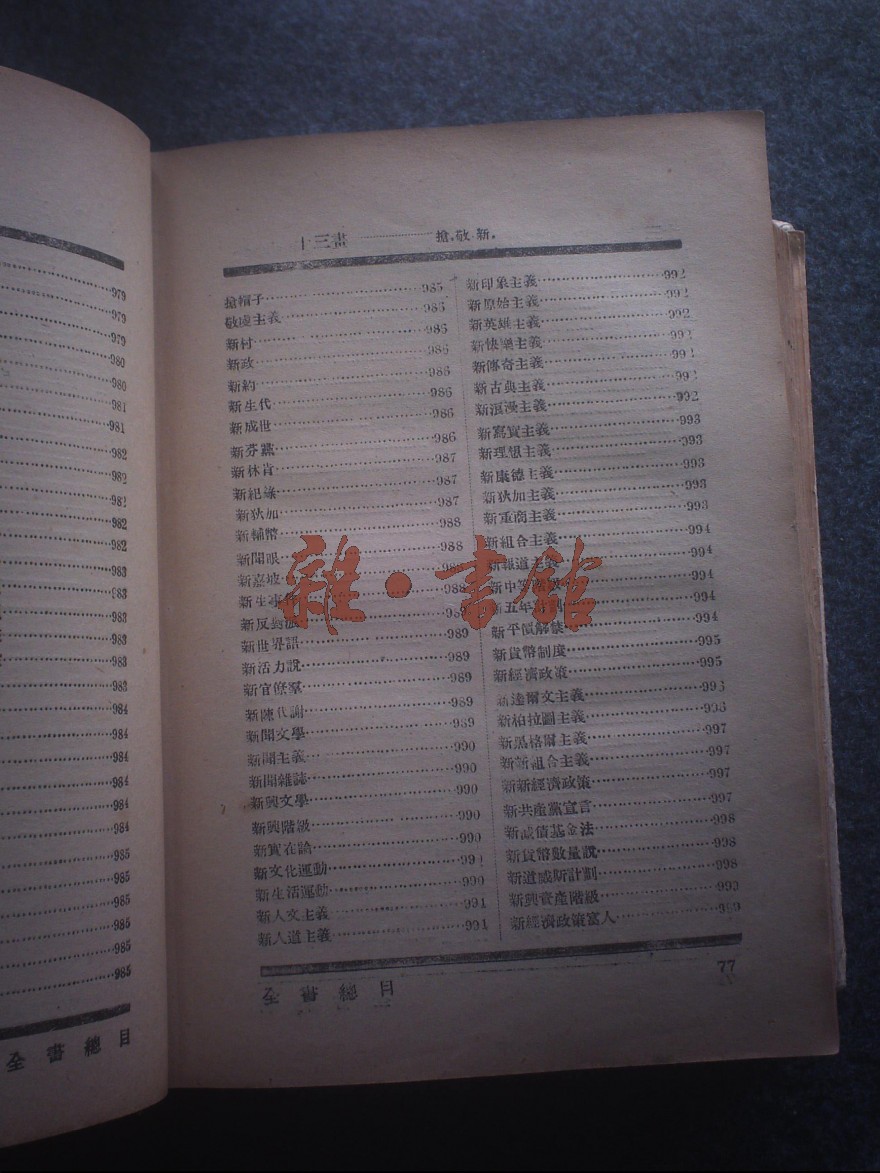 979
979
979
980
980
981
981
982
982
982
982
982
983
983
983
983
983
983
983
984
984
984
984
984
984
985
985
985
985
985
985
全書總目
十三畫 搶.敬.新.
搶帽子 985
敬虔主義 985
新村 985
新政 986
新約 986
新生代 986
新成世 986
新芬黨 986
新林肯 987
新紀錄 987
新狄加 987
新輔幣 988
新聞眼 988
新嘉坡 988
新生事件 988
新反對派 989
新世界語 989
新活力說 989
新官僚羣 989
新陳代謝 989
新聞文學 989
新聞主義 990
新聞雜誌 990
新興文學 990
新興階級 990
新實在論 990
新文化運動 990
新生活運動 990
新人文主義 991
新人道主義 991
新印象主義 992
新原始主義 992
新英雄主義 992
新快樂主義 992
新傳奇主義 992
新古典主義 992
新浪漫主義 992
新寫實主義 993
新理想主義 993
新康德主義 993
新狄加主義 993
新重商主義 993
新組合主義 994
新報道主義 994
新中等階級 994
新五年計劃 994
新平價解禁 994
新貨幣制度 995
新經濟政策 995
新達爾文主義 996
新柏拉圖主義 996
新黑格爾主義 997
新新組合主義 997
新新經濟政策 997
新共產黨宣言 997
新減值基金法 998
新貨幣數量說 998
新道威斯計劃 998
新興資產階級 999
新經濟政策富人 999
全書總目
77
雜·書館